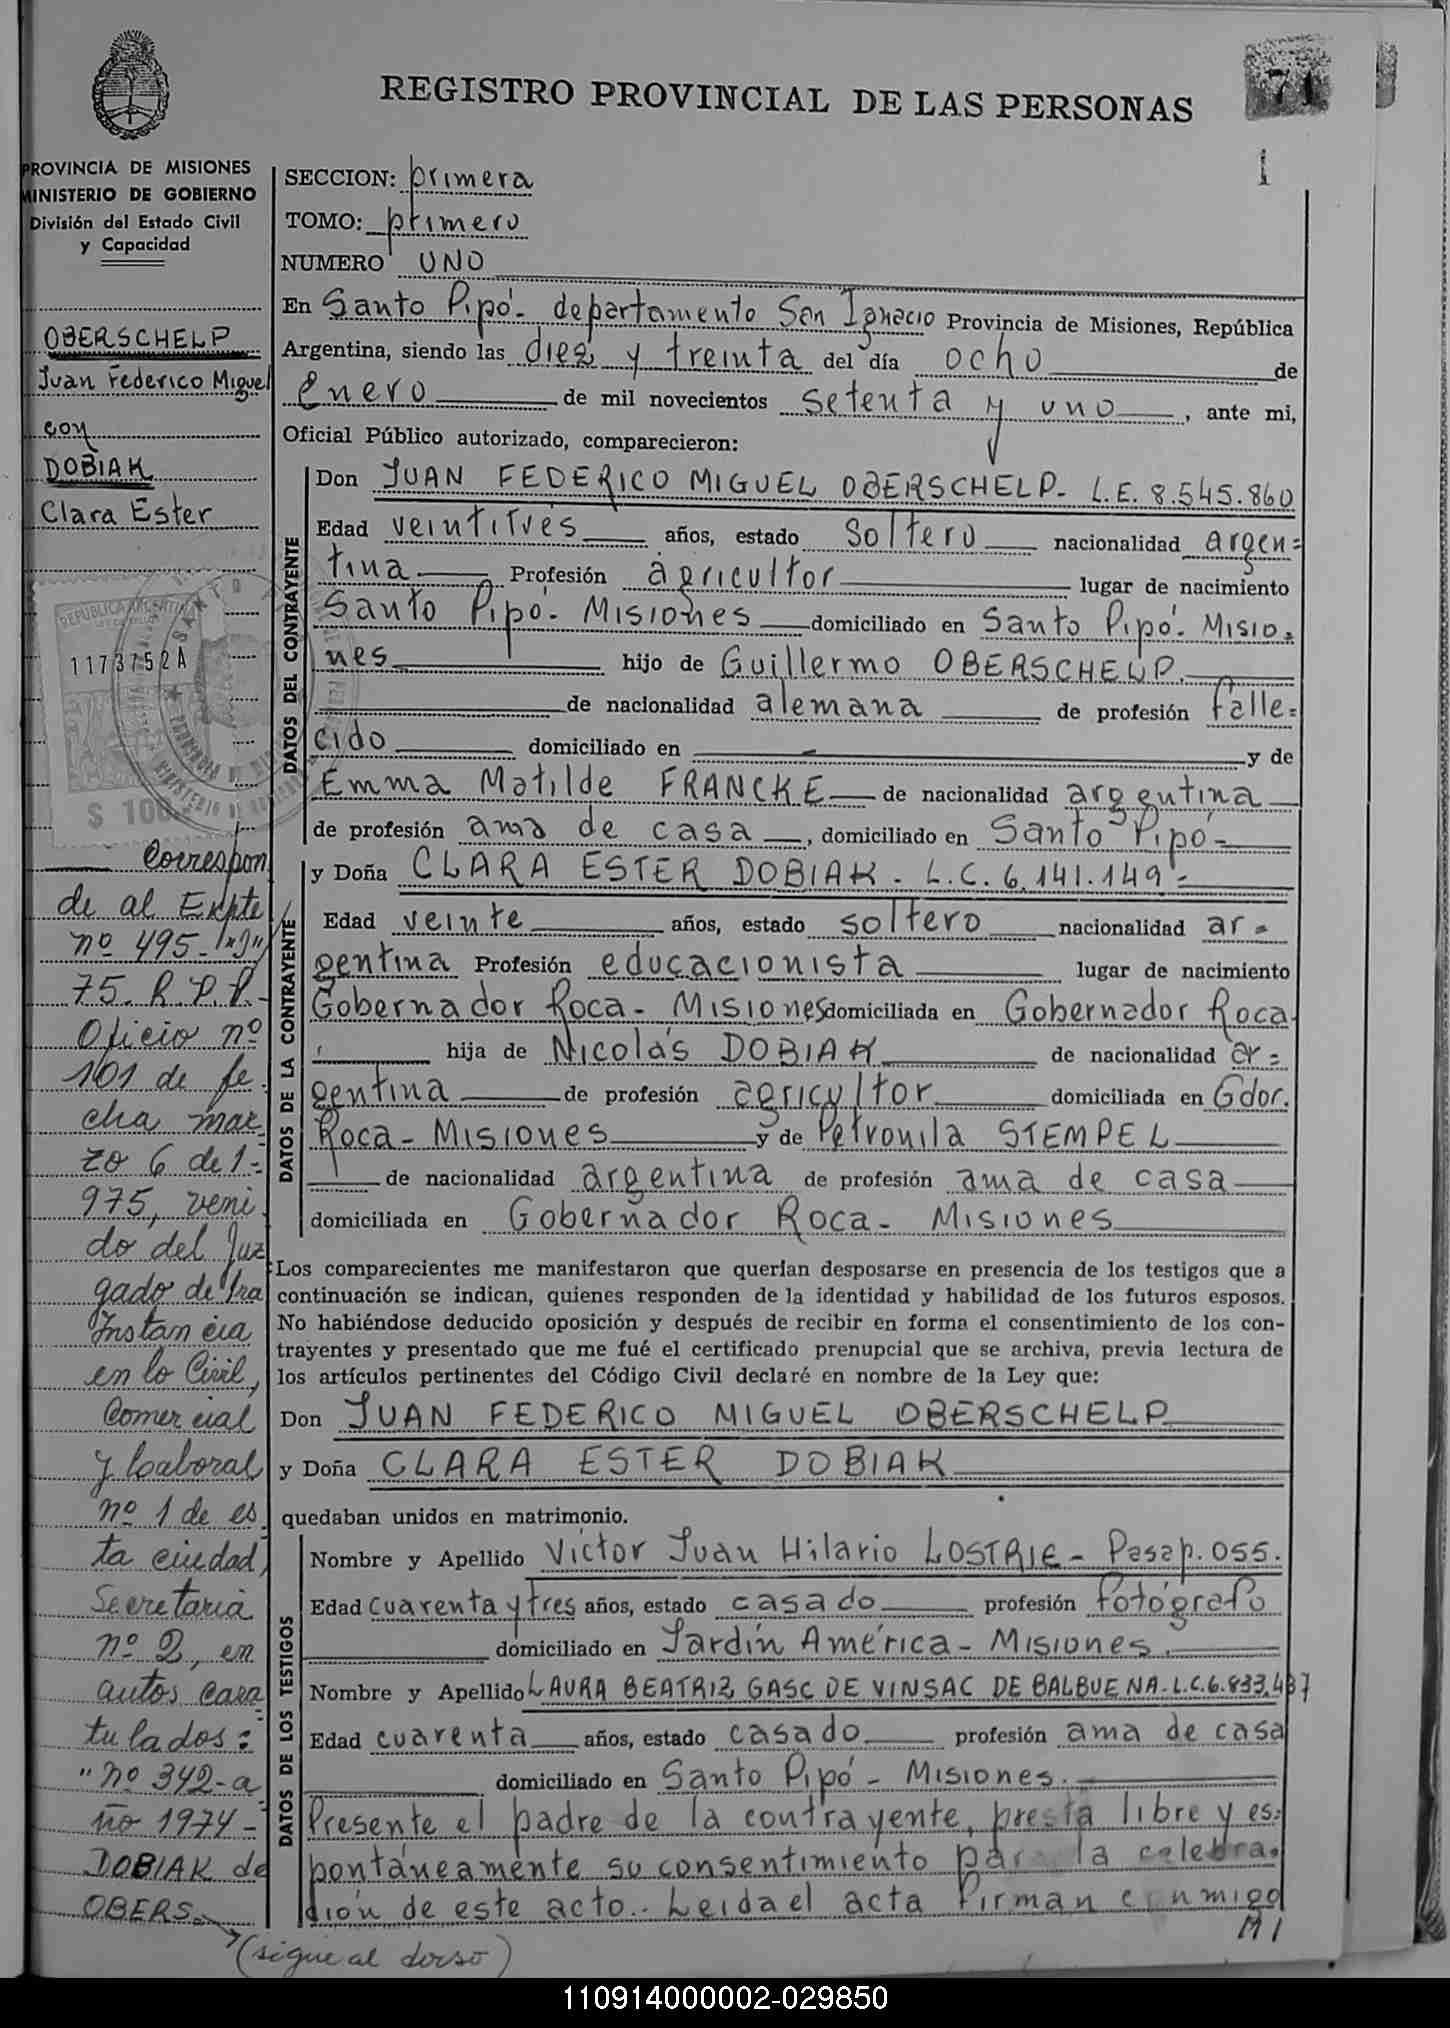 REGISTRO PROVINCIAL DE LAS PERSONAS
71
1
PROVINCIA DE MISIONES
MINISTERIO DE GOBIERNO
División del Estado Civil
y Capacidad
OBERSCHELP
Juan Federico Miguel
con
DOBIAK
Clara Ester
REPUBLICA ARGENTINA
1173752A
$ 100
Correspon
de al Expte
nº 495-"J"
75. R.P.P.-
Oficio nº
101 de fe
cha mar
zo 6 de 1-
975, veni
do del Juz
gado de 1ra
Instancia
en lo Civil,
Comercial
y Laboral
nº 1 de es
ta ciudad,
Secretaria
nº 2, en
autos cara
tulados:
"nº 342-a
ño 1974-
DOBIAK de
OBERS.
(sigue al dorso)
SECCION: primera
TOMO: primero
NUMERO UNO
En Santo Pipó- departamento San Ignacio Provincia de Misiones, República
Argentina, siendo las diez y treinta del día ocho de
Enero de mil novecientos setenta y uno, ante mi,
Oficial Público autorizado, comparecieron:
DATOS DEL CONTRAYENTE
Don JUAN FEDERICO MIGUEL OBERSCHELP- L.E. 8.545.860
Edad veintitrés años, estado soltero nacionalidad argen=
tina Profesión agricultor lugar de nacimiento
Santo Pipó- Misiones domiciliado en Santo Pipó- Misio=
nes hijo de Guillermo OBERSCHELP.
de nacionalidad alemana de profesión falle=
cido domiciliado en - y de
Emma Matilde FRANCKE de nacionalidad argentina
de profesión ama de casa, domiciliado en Santo Pipó-
DATOS DE LA CONTRAYENTE
y Doña CLARA ESTER DOBIAK- L.C. 6.141.149-
Edad veinte años, estado soltero nacionalidad ar=
gentina Profesión educacionista lugar de nacimiento
Gobernador Roca- Misiones domiciliada en Gobernador Roca
hija de Nicolás DOBIAK de nacionalidad ar=
gentina de profesión agricultor domiciliada en Gdor.
Roca- Misiones y de Petronila STEMPEL
de nacionalidad argentina de profesión ama de casa
domiciliada en Gobernador Roca- Misiones
Los comparecientes me manifestaron que querían desposarse en presencia de los testigos que a
continuación se indican, quienes responden de la identidad y habilidad de los futuros esposos.
No habiéndose deducido oposición y después de recibir en forma el consentimiento de los con-
trayentes y presentado que me fué el certificado prenupcial que se archiva, previa lectura de
los artículos pertinentes del Código Civil declaré en nombre de la Ley que:
Don JUAN FEDERICO MIGUEL OBERSCHELP
y Doña CLARA ESTER DOBIAK
quedaban unidos en matrimonio.
DATOS DE LOS TESTIGOS
Nombre y Apellido Víctor Juan Hilario LOSTRIE- Pasap. 055.
Edad cuarenta y tres años, estado casado profesión fotógrafo
domiciliado en Jardín América- Misiones.
Nombre y Apellido LAURA BEATRIZ GASC DE VINSAC DE BALBUENA-L.C.6.833.437
Edad cuarenta años, estado casado profesión ama de casa
domiciliado en Santo Pipó- Misiones.
Presente el padre de la contrayente, presta libre y es=
pontáneamente su consentimiento para la celebra=
ción de este acto.. Leida el acta firman conmigo
110914000002-029850